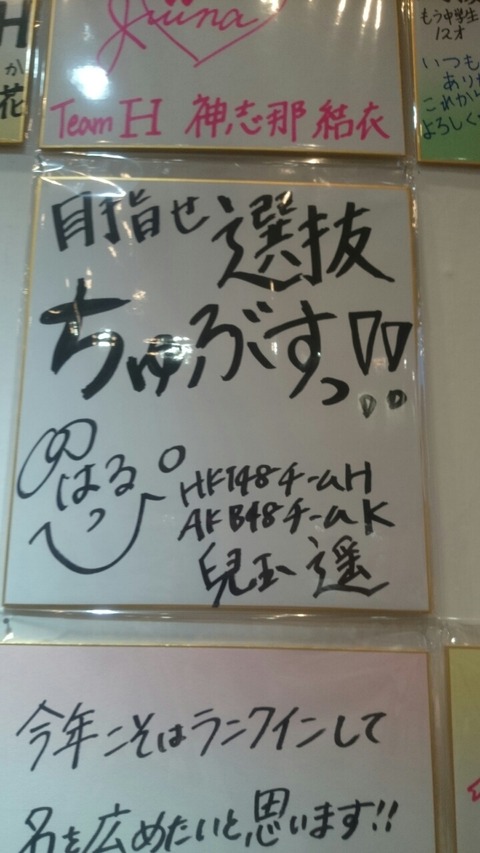 H
か
花
Jiina
Team H 神志那 結衣
もう中学生
12才
いつも
あり
これから
よろしく
目指せ選抜
ちゅぶすっ!!
はるっ
HKT48チームH
AKB48チームK
兒玉 遥
今年こそはランクインして
名を広めたいと思います!!